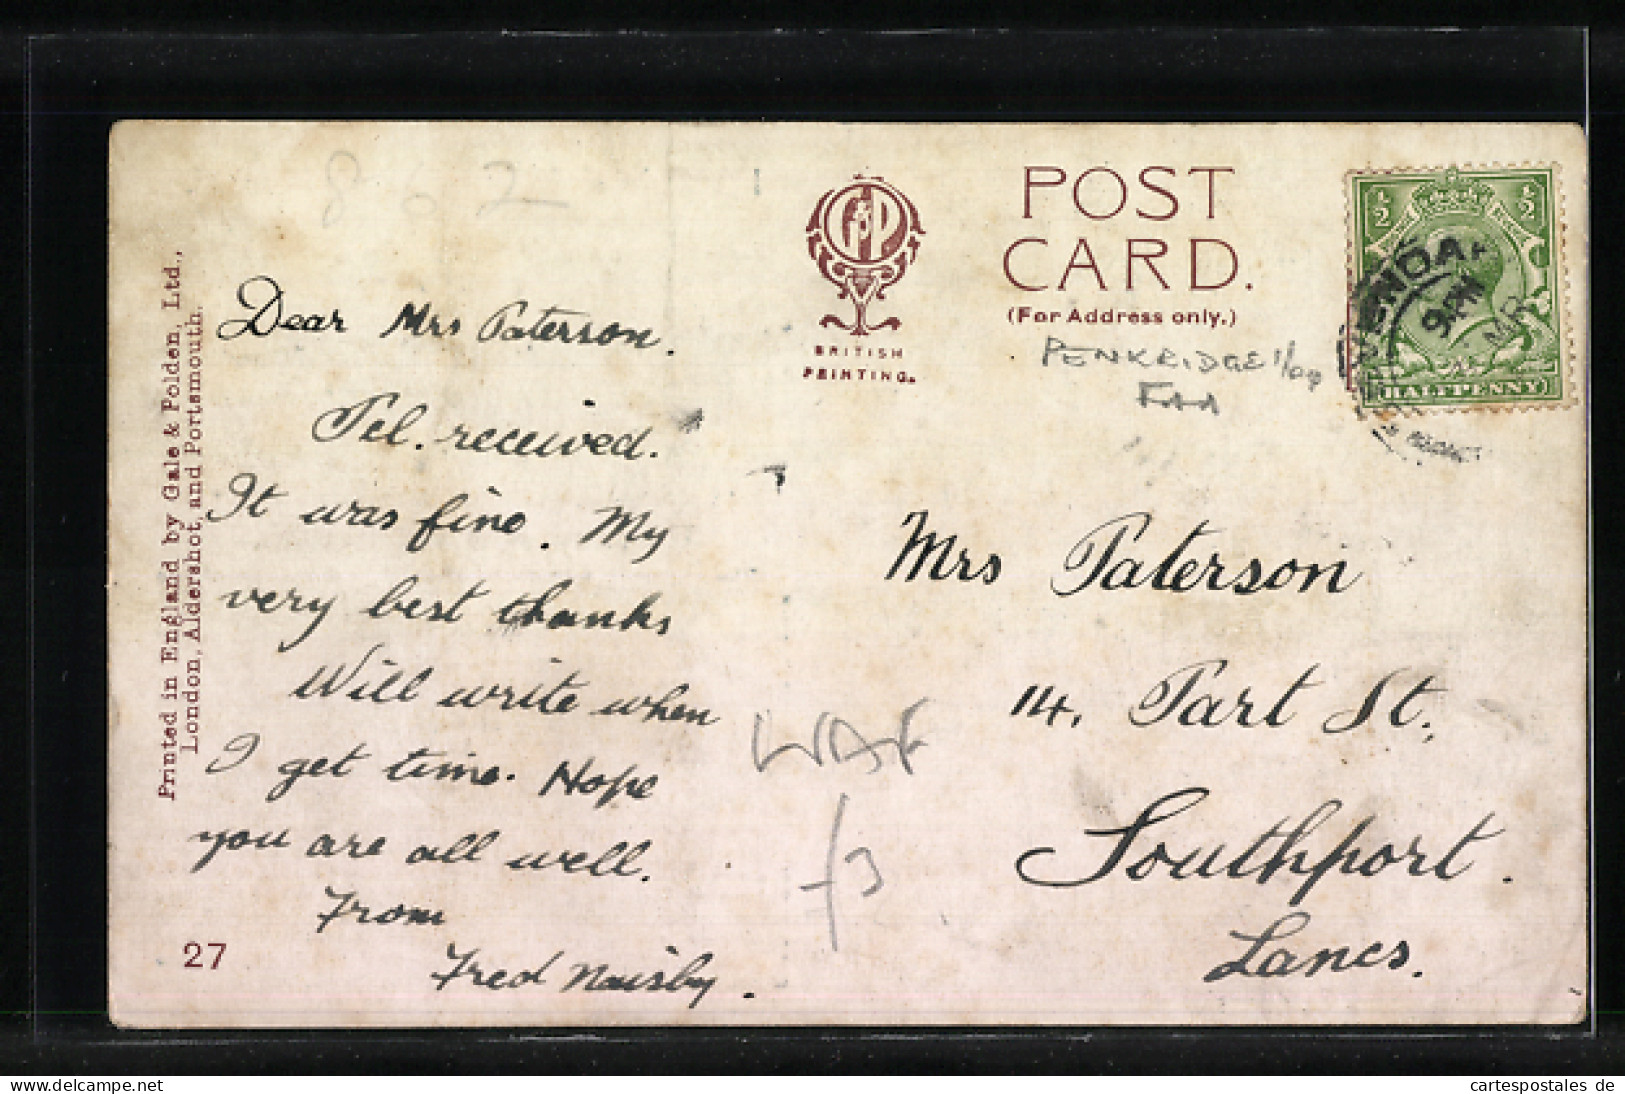 862
Printed in England by Gale & Polden, Ltd.,
London, Aldershot, and Portsmouth.
Dear Mrs Paterson.
Tel. received.
It was fine. My
very best thanks
Will write when
I get time. Hope
you are all well.
From
Fred Naisby.
27
BRITISH
PRINTING.
POST
CARD.
(For Address only.)
PENKRIDGE
½ ½
HALFPENNY
9 PM
MR
Mrs Paterson
14, Part St.,
Southport.
Lancs.
WAR
£3
ak
cartespostales de